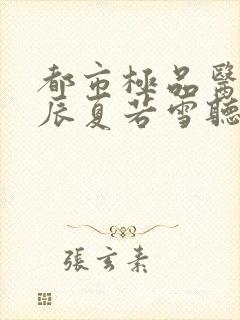 都市極品醫
辰夏若雪聽
張玄素